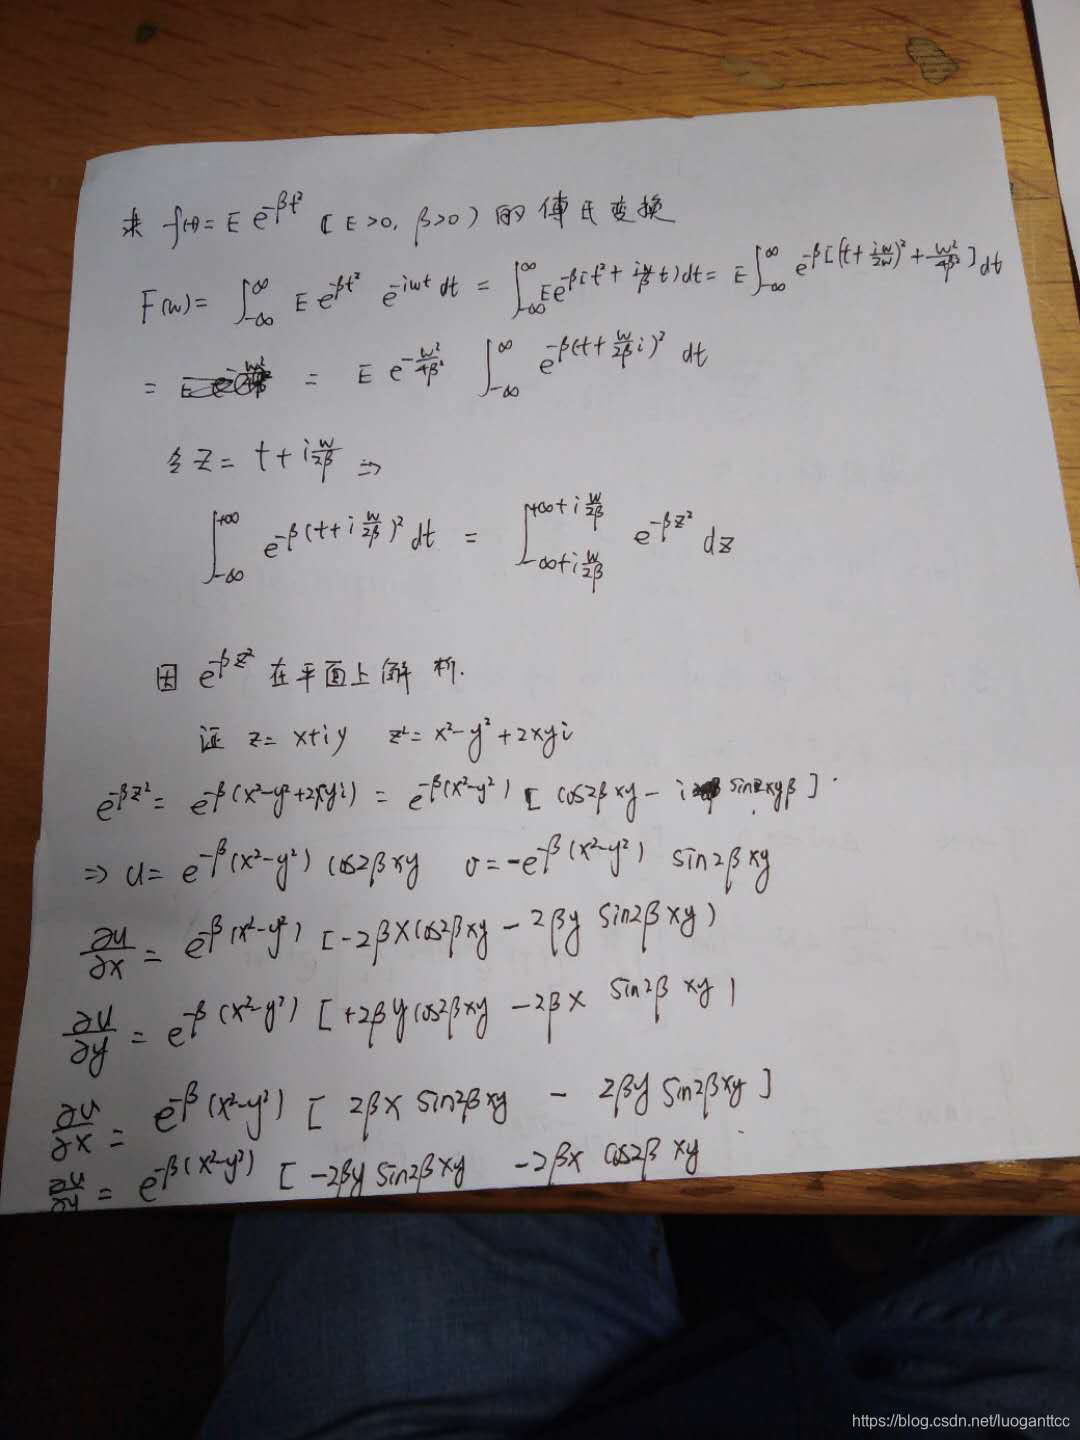 求 f(t)= E e^{-βt²} [E>0, β>0) 的傅氏变换
F(w)= ∫_{-∞}^{∞} E e^{-βt²} e^{-iwt} dt = ∫_{-∞}^{∞} E e^{-β[t²+\frac{iw}{β}t)} dt = E ∫_{-∞}^{∞} e^{-β[(t+\frac{iw}{2w})²+\frac{w²}{4β²}]} dt
= = E e^{-\frac{w²}{4β²}} ∫_{-∞}^{∞} e^{-β(t+\frac{w}{2β}i)²} dt
令 z= t+i\frac{w}{2β} ⇒
∫_{-∞}^{+∞} e^{-β(t+i\frac{w}{2β})²} dt = ∫_{-∞+i\frac{w}{2β}}^{+∞+i\frac{w}{2β}} e^{-βz²} dz
因 e^{-βz²} 在平面上解析.
证 z= x+iy z²= x²-y²+2xyi
e^{-βz²}= e^{-β(x²-y²+2xyi)} = e^{-β(x²-y²)} [cos2βxy - i sin2xyβ]
⇒ u= e^{-β(x²-y²)} cos2βxy v= -e^{-β(x²-y²)} sin2βxy
\frac{∂u}{∂x} = e^{-β(x²-y²)} [-2βx cos2βxy - 2βy sin2βxy)
\frac{∂u}{∂y} = e^{-β(x²-y²)} [+2βy cos2βxy - 2βx sin2βxy)
\frac{∂v}{∂x} = e^{-β(x²-y²)} [2βx sin2βxy - 2βy sin2βxy]
= e^{-β(x²-y²)} [-2βy sin2βxy - 2βx cos2βxy
https://blog.csdn.net/luoganttcc